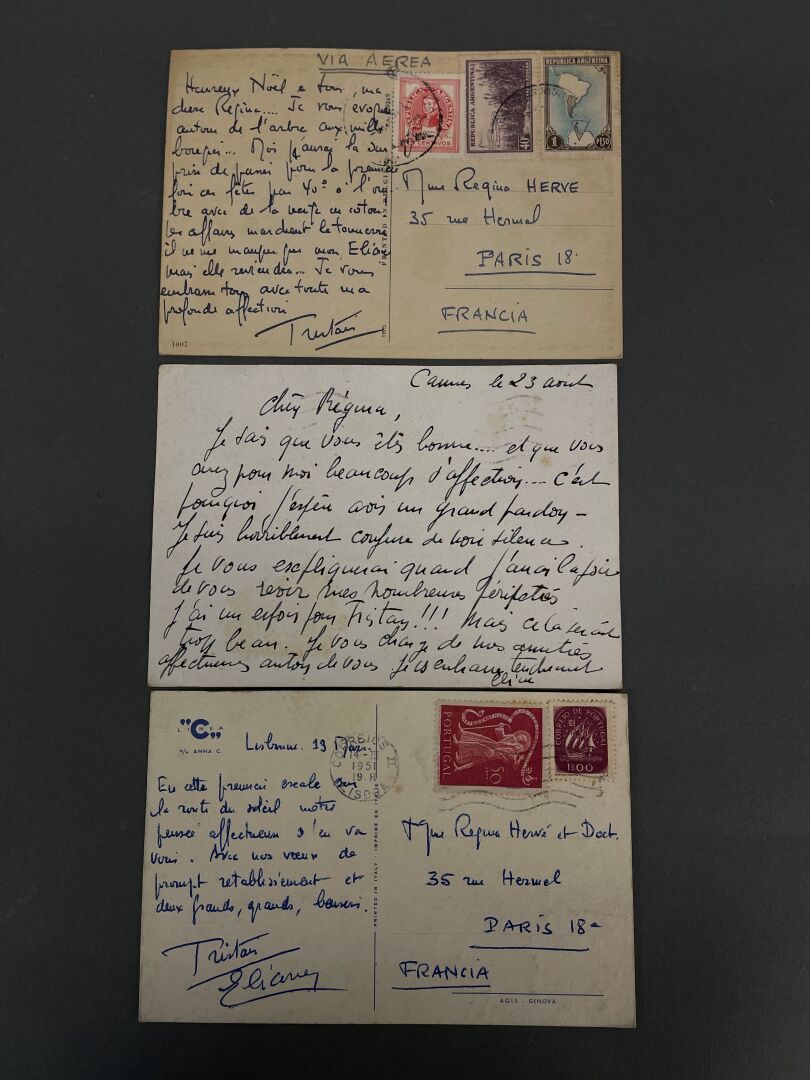 VIA AEREA
REPUBLICA ARGENTINA
CENTAVOS
REPUBLICA ARGENTINA
40c
REPUBLICA ARGENTINA
1 PESO
Heureux Noël à tous, ma
chère Regina.... Je vous évoque
autour de l'arbre aux mille
Moi j'aurai la sur
prise de passer pour la première
fois ces fêtes par 40° à l'om
bre avec de la neige en coton
les affaires marchent le tonnerre
il ne me manque que mon Eliane
mais elle reviendra... Je vous
embrasse tous avec toute ma
profonde affection
Tristan
1007
PRINTED IN
Mme Regina HERVE
35 rue Hermel
PARIS 18e
FRANCIA
Cannes le 23 août
Chère Régina,
Je sais que vous êtes bonne.... et que vous
avez pour moi beaucoup d'affection.... c'est
pourquoi j'espère avoir un grand pardon –
Je suis horriblement confuse de mon silence.
Je vous expliquerai quand j'aurai la joie
de vous revoir mes nombreuses péripéties
J'ai un espoir pour Tristan!!! Mais cela serait
trop beau. Je vous charge de nos amitiés
affectueuses autour de vous. Je vous embrasse tendrement
Eliane
"C"
LINEA
M/n ANNA C.
Lisbonne. 19
CORREIOS
1951
19.H
LISBOA
PORTUGAL
$50
CORREIO DE PORTUGAL
1$00
En cette première escale sur
la route du soleil notre
pensée affectueuse s'en va
vers vous. Avec nos vœux de
prompt retablissement et
deux grands, grands, baisers.
Tristan
Eliane
PRINTED IN ITALY - IMPRIMÉ EN ITALIE
Mme Regina Hervé et Doct.
35 rue Hermel
PARIS 18e
FRANCIA
A.G.I.S. - GENOVA